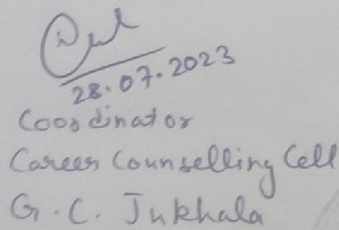 28.07.2023
Coordinator
Career Counselling Cell
G.C. Jukhala